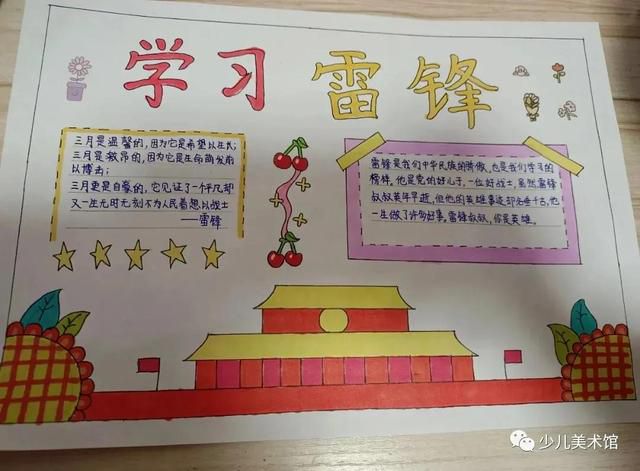 学习雷锋
三月是温馨的，因为它是希望以生长；
三月是激昂的，因为它是生命萌发前
以搏击；
三月更是自豪的，它见证了一个平凡却
又一生无时无刻不为人民着想以战士
——雷锋
雷锋是我们中华民族的骄傲，也是我们学习的
榜样。他是党的好儿子，一位好战士，虽然雷锋
叔叔英年早逝，但他的英雄事迹却名垂千古，他
一生做了许多好事。雷锋叔叔，你是英雄。
少儿美术馆